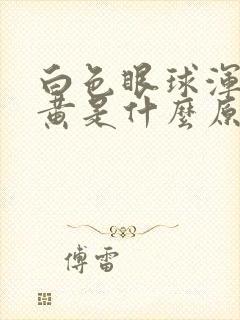 白色眼球渾
黃是什麼原
傅雷